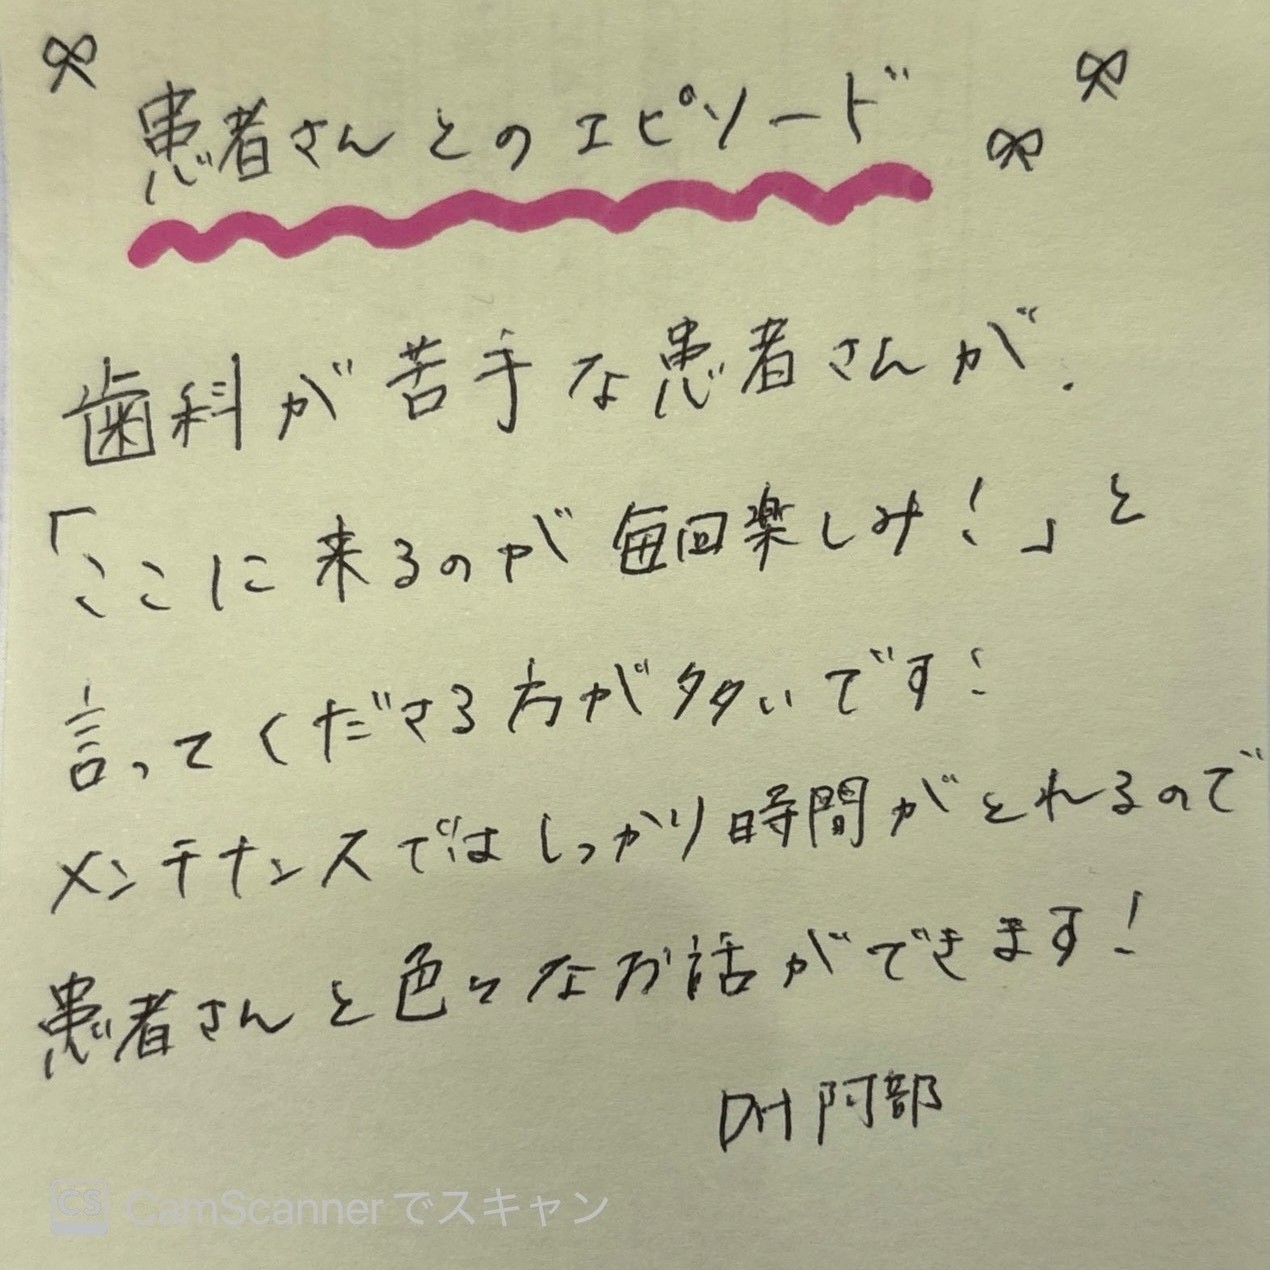 患者さんとのエピソード
歯科が苦手な患者さんが、
「ここに来るのが毎回楽しみ!」と
言ってくださる方が多いです!
メンテナンスではしっかり時間がとれるので
患者さんと色々なお話ができます!
DH 阿部
CS CamScannerでスキャン